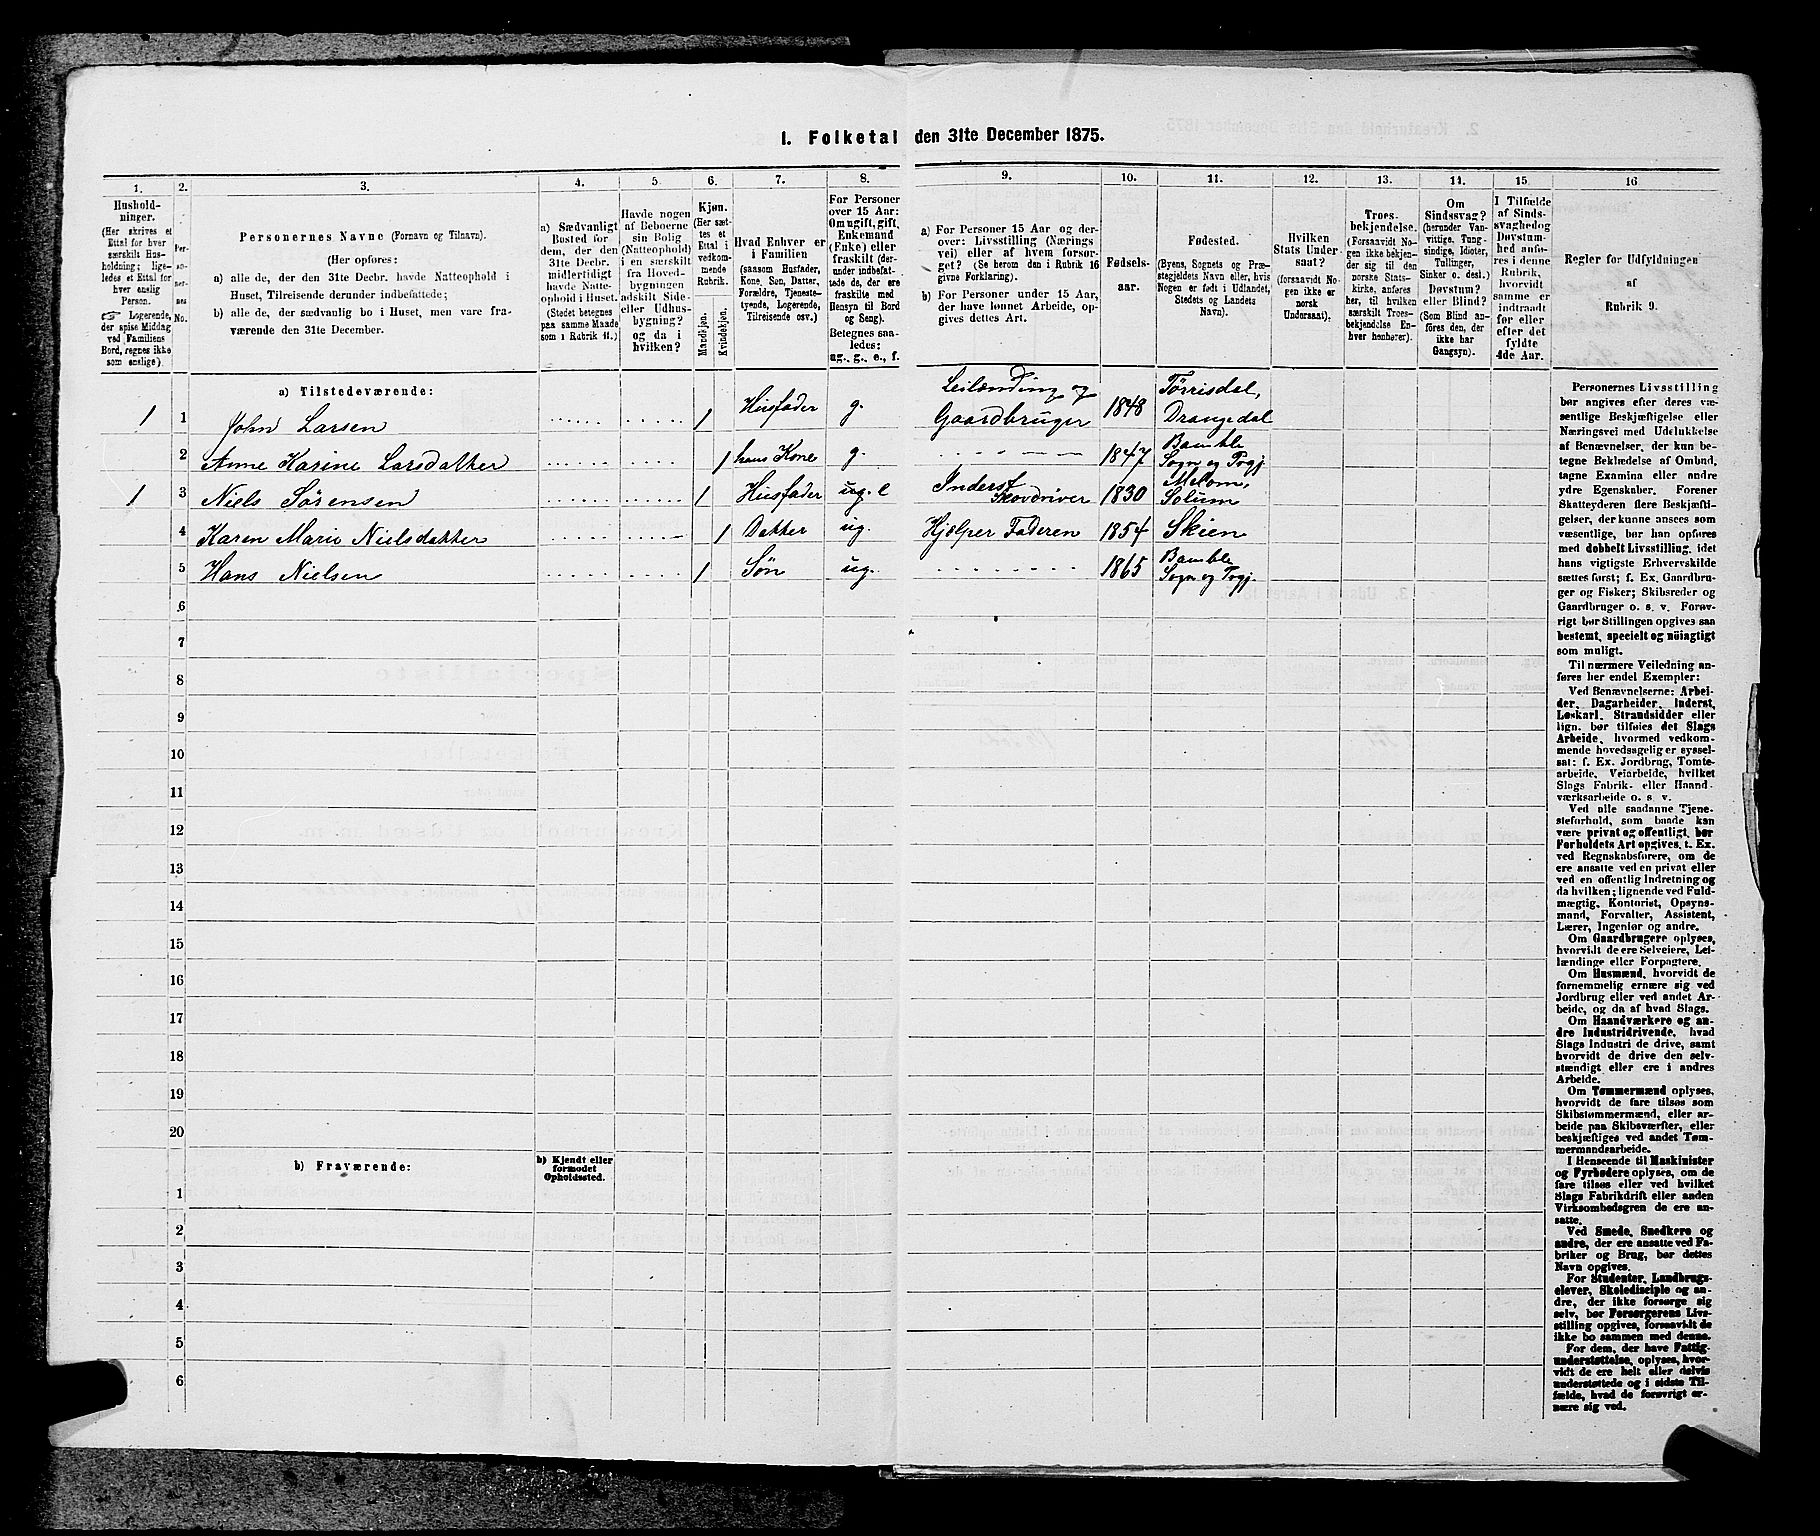 1. Folketal den 31te December 1875.
1. 2. 3. 4. 5. 6. 7. 8. 9. 10. 11. 12. 13. 14. 15. 16
Husholdninger.
(Her skrives et
Ettal for hver
særskilt Husholdning;
ligeledes et Ettal for
hver enslig
Person.
☞ Logerende,
der spise Middag
ved Familiens
Bord, regnes ikke
som enslige).
Personernes No.
Personernes Navne (Fornavn og Tilnavn).
(Her opføres:
a) alle de, der den 31te Decbr. havde Natteophold i
Huset, Tilreisende derunder indbefattede;
b) alle de, der sædvanlig bo i Huset, men vare fraværende
den 31te December.
a) Sædvanligt
Bosted for
dem, der den
31te Decbr.
midlertidigt
havde Natteophold
i Huset.
(Stedet betegnes
paa samme Maade
som i Rubrik 11.)
Havde nogen
af Beboerne
sin Bolig
(Natteophold)
i en særskilt
fra Hovedbygningen
adskilt Side-
eller Udhusbygning?
og da i
hvilken?
Kjøn.
(Her sættes
et
Ettal i
vedkommende
Rubrik.
Mandkjøn.
Kvindekjøn.
Hvad Enhver er
i Familien
(saasom Husfader,
Kone, Søn, Datter,
Forældre, Tjenestetyende,
Logerende,
Tilreisende osv.)
For Personer
over 15 Aar:
Om ugift, gift,
Enkemand
(Enke) eller
fraskilt (derunder
indbefattede
de, der ere
fraskilte med
Hensyn til Bord
og Seng).
Betegnes saaledes:
ug., g., e., f.
a) For Personer 15 Aar og derover:
Livsstilling (Næringsvei)
eller af hvem forsørget?
(Se herom den i Rubrik 16
givne Forklaring).
b) For Personer under 15 Aar,
der have lønnet Arbeide, opgives
dettes Art.
Fødselsaar.
Fødested.
(Byens, Sognets og Præstegjeldets
Navn eller, hvis
Nogen er født i Udlandet,
Stedets og Landets
Navn).
Hvilken
Stats Undersaat?
(forsaavidt Nogen
ikke er
norsk
Undersaat).
Troesbekjendelse.
(Forsaavidt Nogen
ikke bekjender
sig til den
norske Statskirke,
anføres
her, til hvilken
særskilt Troesbekjendelse
Enhver
henhører).
Om
Sindssvag?
(herunder Vanvittige,
Tungsindige,
Idioter,
Tullinger,
Sinker o. desl.)
Døvstum?
eller Blind?
(Som Blind anføres
den, der
ikke har
Gangsyn).
I Tilfælde
af Sindssvaghed
og
Døvstumhed
anføres
i denne
Rubrik,
hvorvidt
samme er
indtraadt
før eller
efter det
fyldte
4de Aar.
Regler for Udfyldningen
af
Rubrik 9.
a) Tilstedeværende:
1 1 John Larsen 1 Husfader g. Leilænding og Gaardbruger 1848 Tørrisdal, Drangedal
2 Anne Karine Larsdatter 1 hans Kone g. 1847 Bamble Sogn og Prgj.
1 3 Niels Sørensen 1 Husfader ug. Inderst Skovdriver 1830 Melom, Solum
4 Karen Marie Nielsdatter 1 Datter ug. Hjælper Faderen 1854 Skien
5 Hans Nielsen 1 Søn ug. 1865 Bamble Sogn og Prgj.
6
7
8
9
10
11
12
13
14
15
16
17
18
19
20
b) Fraværende:
b) Kjendt eller
formodet
Opholdssted.
1
2
3
4
5
6
Personernes Livsstilling
bør angives efter deres væsentlige
Beskjæftigelse eller
Næringsvei med Udelukkelse
af Benævnelser, der kun betegne
Beklædelse af Ombud,
tagne Examina eller andre
ydre Egenskaber. Forener
Skatteyderen flere Beskjæftigelser,
der kunne ansees som
væsentlige, bør han opføres
med dobbelt Livsstilling, idet
hans vigtigste Erhvervskilde
sættes først; f. Ex. Gaardbruger
og Fisker; Skibsreder og
Gaardbruger o. s. v. Forøvrigt
bør Stillingen opgives saa
bestemt, specielt og nøiagtigt
som muligt.
Til nærmere Veiledning anføres
her endel Exempler:
Ved Benævnelserne: Arbeider,
Dagarbeider, Inderst,
Løskarl, Strandsidder eller
lign. bør tilføies det Slags
Arbeide, hvormed vedkommende
hovedsagelig er sysselsat:
f. Ex. Jordbrug, Tomtearbeide,
Veiarbeide, hvilket
Slags Fabrik- eller Haandværksarbeide
o. s. v.
Ved alle saadanne Tjenesteforhold,
som baade kan
være privat og offentligt, bør
Forholdets Art opgives, t. Ex.
ved Regnskabsførere, om de
ere ansatte ved en privat eller
ved en offentlig Indretning og
da hvilken; lignende ved Fuldmægtig,
Kontorist, Opsynsmand,
Forvalter, Assistent,
Lærer, Ingeniør og andre.
Om Gaardbrugere oplyses,
hvorvidt de ere Selveiere, Leilændinge
eller Forpagtere.
Om Husmænd, hvorvidt de
fornemmelig ernære sig ved
Jordbrug eller ved andet Arbeide,
og da af hvad Slags.
Om Haandværkere og andre
Industridrivende, hvad
Slags Industri de drive, samt
hvorvidt de drive den selvstændigt
eller ere i andres
Arbeide.
Om Tømmermænd oplyses,
hvorvidt de fare tilsøs som
Skibstømmermænd, eller arbeide
paa Skibsværfter, eller
beskjæftiges ved andet Tømmermandsarbeide.
I Henseende til Maskinister
og Fyrbødere oplyses, om de
fare tilsøs eller ved hvilket
Slags Fabrikdrift eller anden
Virksombedsgren de ere ansatte.
Ved Smede, Snedkere og
andre, der ere ansatte ved Fabriker
og Brug, bør dettes
Navn opgives.
For Studenter, Landbrugselever,
Skoledisciple og andre,
der ikke forsørge sig
selv, bør Forsørgerens Livsstilling
opgives, forsaavidt de
ikke bo sammen med denne.
For dem, der have Fattigunderstøttelse,
oplyses, hvorvidt
de ere helt eller delvis
understøttede og i sidste Tilfælde,
hvad de forøvrigt ernære
sig ved.